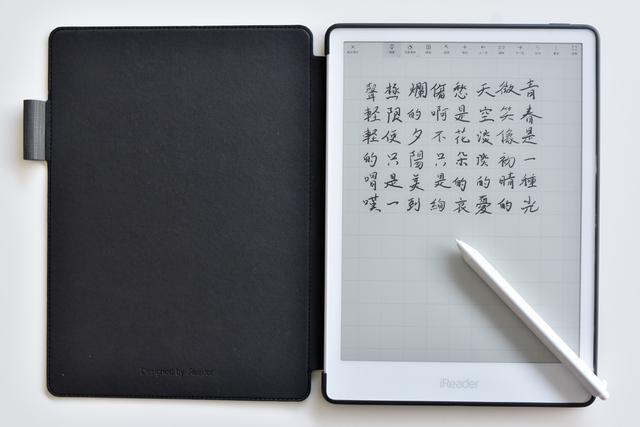 青春是一種光
微笑像初晴的
天空淡淡的憂
愁是花朵的哀
傷啊不只是絢
爛的夕陽美到
極限便只是一
聲輕輕的喟嘆
Designed by iReader
iReader